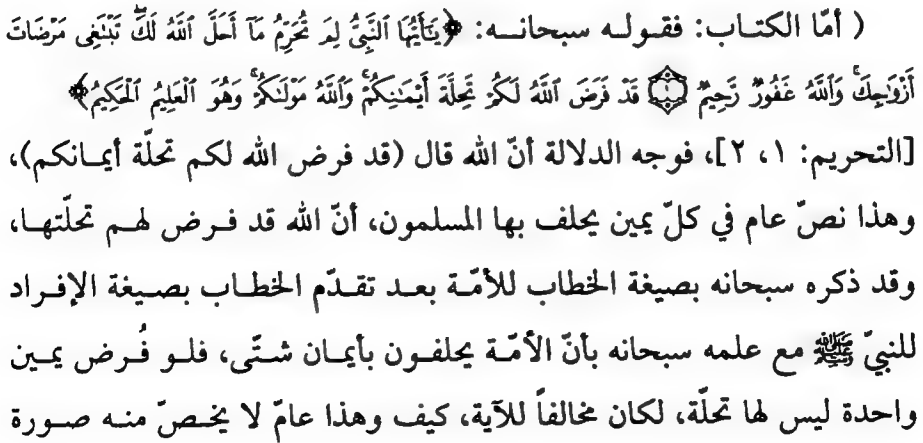 ( أمّا الكتـاب: فقـولـه سبحانـــه: ﴿يَـٰٓأَيُّهَا ٱلنَّبِىُّ لِمَ تُحَرِّمُ مَآ أَحَلَّ ٱللَّهُ لَكَ ۖ تَبْتَغِى مَرْضَاتَ
أَزْوَٰجِكَ ۚ وَٱللَّهُ غَفُورٌ رَّحِيمٌ ۝١ قَدْ فَرَضَ ٱللَّهُ لَكُمْ تَحِلَّةَ أَيْمَـٰنِكُمْ ۚ وَٱللَّهُ مَوْلَىٰكُمْ ۖ وَهُوَ ٱلْعَلِيمُ ٱلْحَكِيمُ﴾
[التحريم: ١، ٢]، فوجه الدلالة أنّ الله قال (قد فرض الله لكم تحلّة أيمـانكم)،
وهذا نصّ عام في كلّ يمين يحلف بها المسلمون، أنّ الله قد فـرض لهـم تحلّتهـا،
وقد ذكره سبحانه بصيغة الخطاب للأمّـة بعـد تقـدّم الخطـاب بصـيغة الإفـراد
للنبيّ ﷺ مع علمه سبحانه بأنّ الأمّـة يحلفـون بأيمـان شتّـى، فلـو فُـرض يمـين
واحدة ليس لها تحلّة، لكان مخالفاً للآية، كيف وهذا عامّ لا يخـصّ منـه صـورة